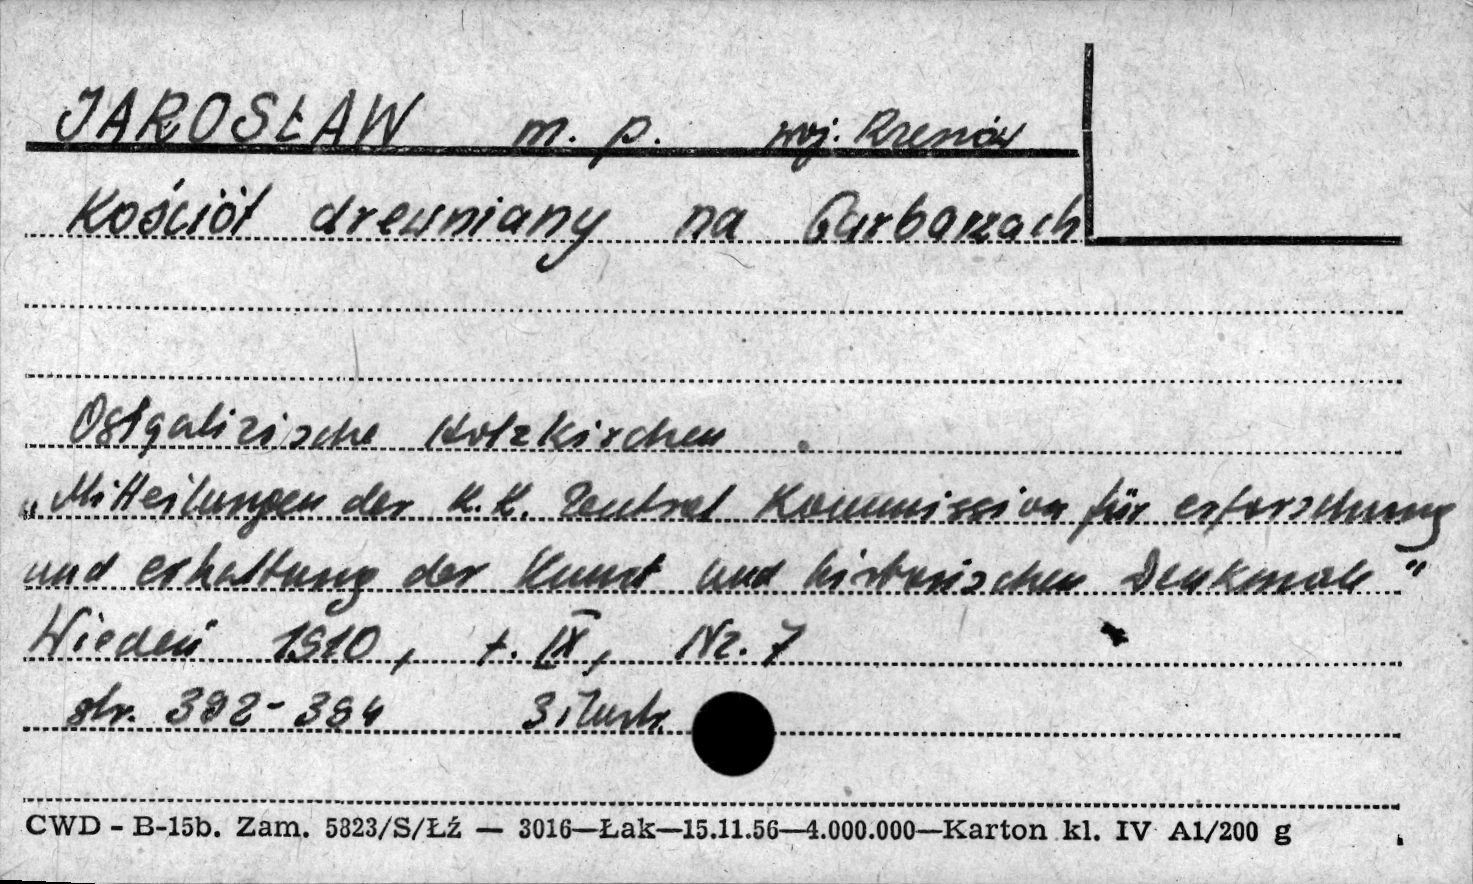 JAROSŁAW m. p. woj. Rzeszów
Kościół drewniany na Garbarzach
Ostgalizische Holzkirchen.
„Mitteilungen der K.K. Zentral Kommission für erforschung
und erhaltung der Kunst und historischen Denkmale"
Wiedeń 1910, t. IX, Nr. 7
str. 392-394 3 ilustr.
CWD - B-15b. Zam. 5823/S/Łź — 3016—Łak—15.11.56—4.000.000—Karton kl. IV A1/200 g